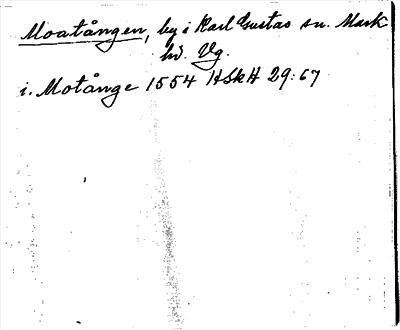 Moatången, by i Karl Gustav sn. Mark
hd. Vg.
i. Motånge 1554 HSkH 29:67